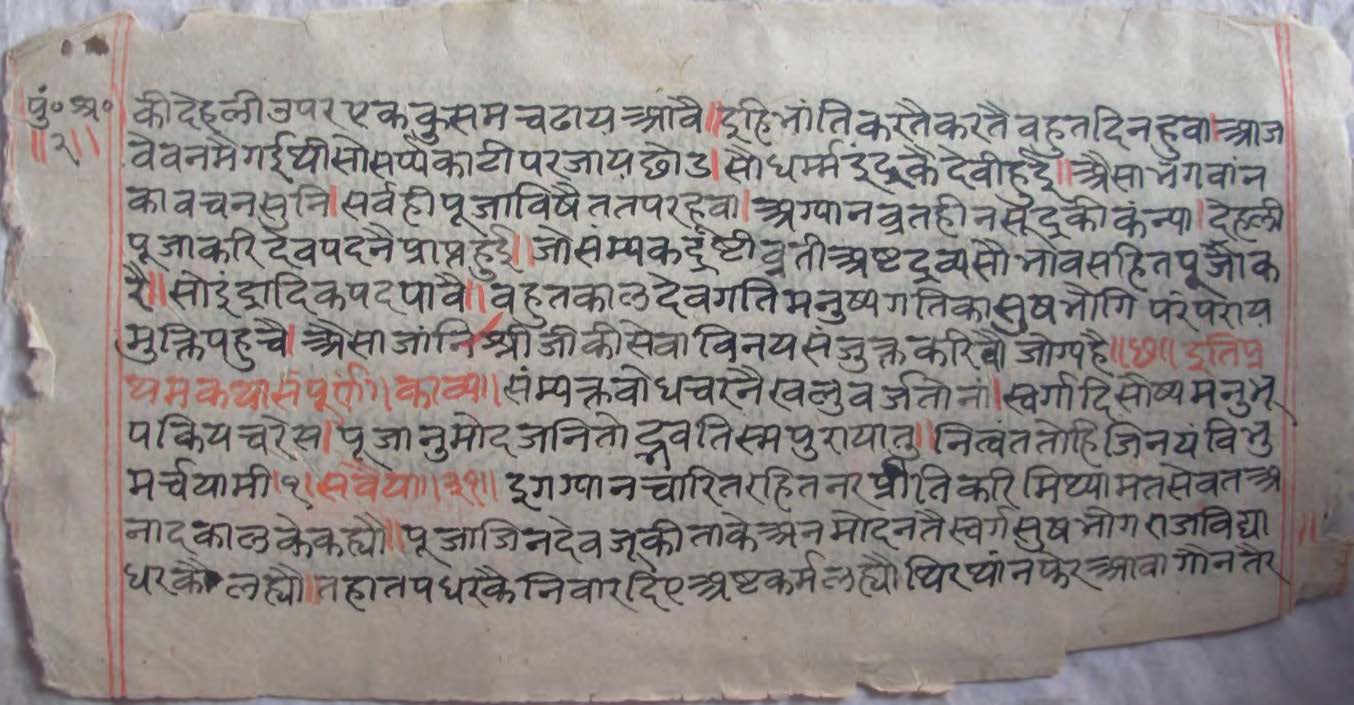 पुं॰ अ॰
॥२॥
की देहली उपर एक कुसम चढाय आवै॥ इहि भांति करतै करतै बहुत दिन हुवा। आज
वै वन मै गई थी सो सर्प्प काटी पर जाय छोड। सौधर्म्म इंद्र कै देवी हुई॥ अैसा भगवांन
का वचन सुंनि। सर्व ही पूजा विषै ततपर हूवा। अग्यान व्रत हीन सूद्र की कंन्या। देहली
पूजा करि देव पद नै प्राप्त हुई॥ जो संम्यक द्रष्टी व्रती अष्ट द्रव्य सौ भाव सहित पूजा क
रै॥ सो इंद्रादिक पद पावै॥ बहुत काल देवगति मनुष्य गति का सुष भोगि परंपराय
मुक्ति पहुचै। अैसा जांनि श्री जी की सेवा विनय संजुक्त करिवौ जोग्य है॥छ॥ इति प्र
थम कथा संपूर्ण। काव्य। संम्यक्त वोध चरनै खलु वर्जतोना। स्वर्गादि सोष्य मनुभू
य कियचरेस। पूजानुमोद जनितोद्भवतिस्म पुरायातु॥ नित्वं ततोहि जिनयं विभु
मर्चयामी।१। सवैया॥३१॥ द्रग ग्यान चारित रहित नर प्रीति करि मिथ्यामत सेवत अ
नाद काल के कह्यौ॥ पूजा जिनदेव जू की ताके अनमोदन तै स्वर्ग सुष भोग राज विद्या
धर कौ लह्यौ। तहा तप धरकै निवार दिए अष्ट कर्म लह्यौ थिर थांन फेर आवागौन तै र